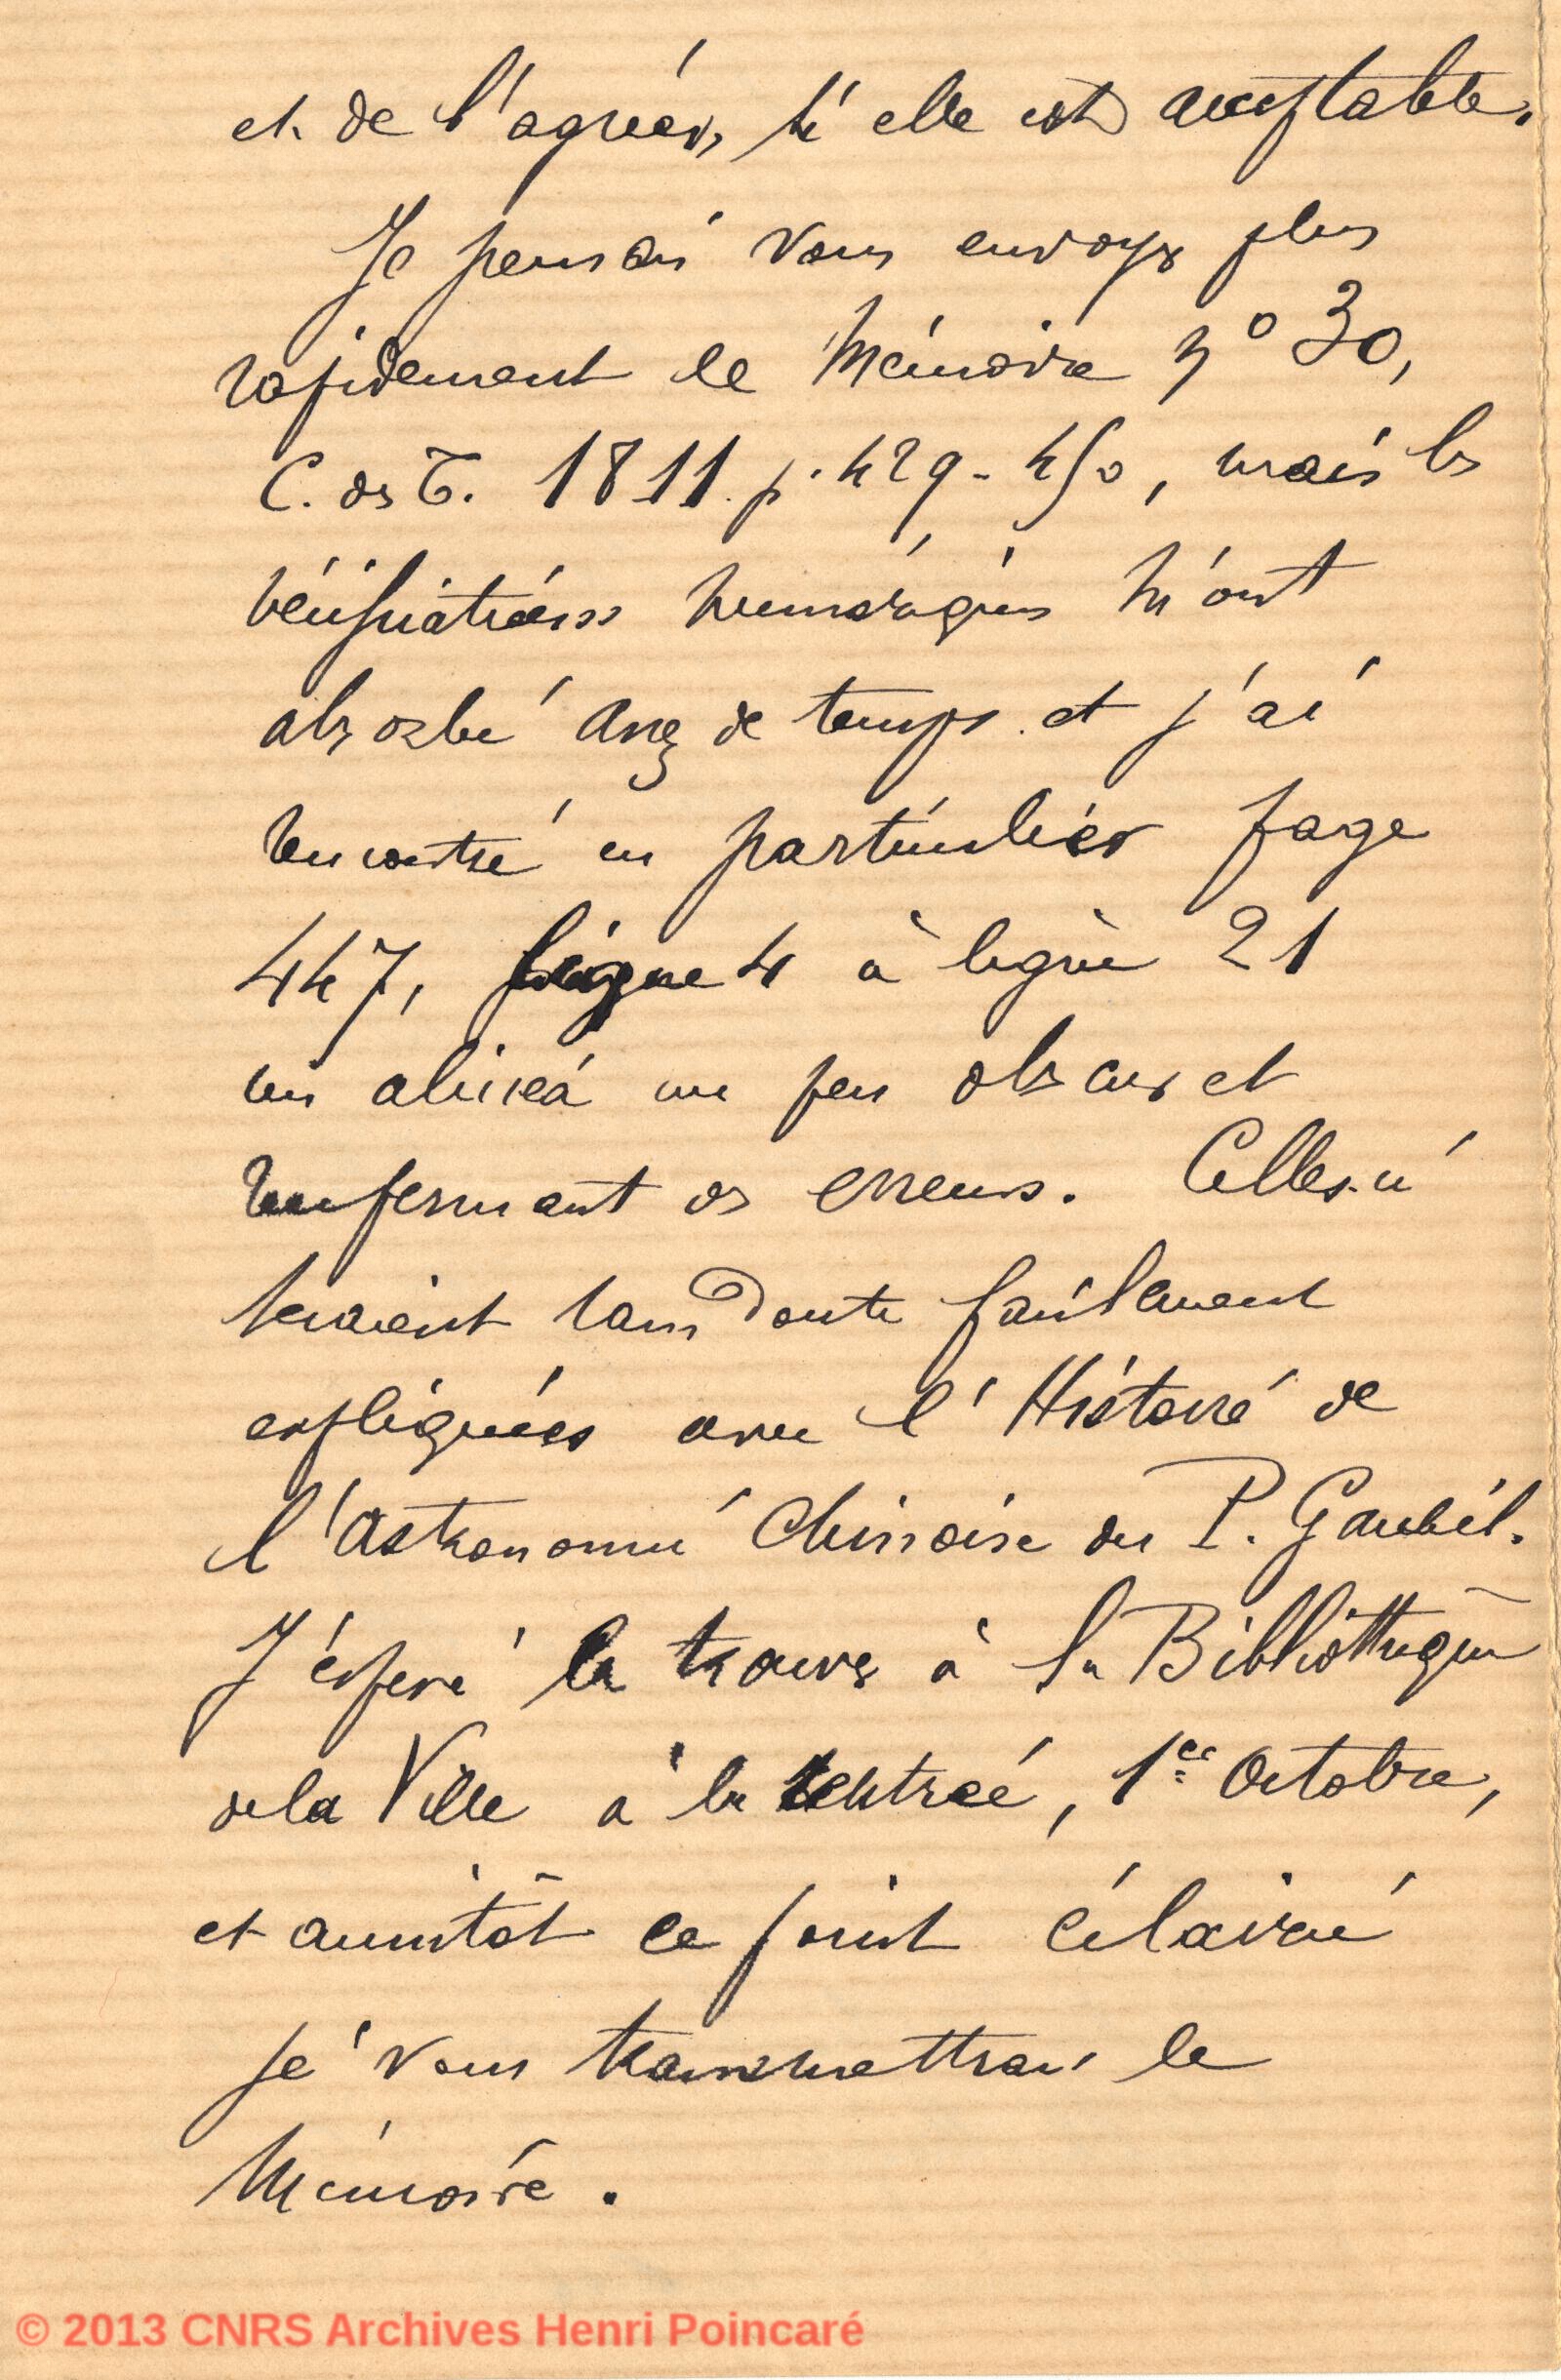 et de l'agréer, si elle est acceptable.
Je pensais vous envoyer plus
rapidement le Mémoire n° 30,
C. des T. 1811. p. 429-450, mais les
vérifications numériques m'ont
absorbé assez de temps et j'ai
rencontré en particulier page
447, ligne 4 à ligne 21
un alinéa un peu obscur et
renfermant des erreurs. Celles-ci
seraient sans doute facilement
expliquées avec l'Histoire de
l'Astronomie Chinoise du P. Gaubil.
J'espère la trouver à la Bibliothèque
de la Ville à la rentrée, 1er Octobre,
et aussitôt ce point éclairci
je vous transmettrai le
Mémoire.
© 2013 CNRS Archives Henri Poincaré